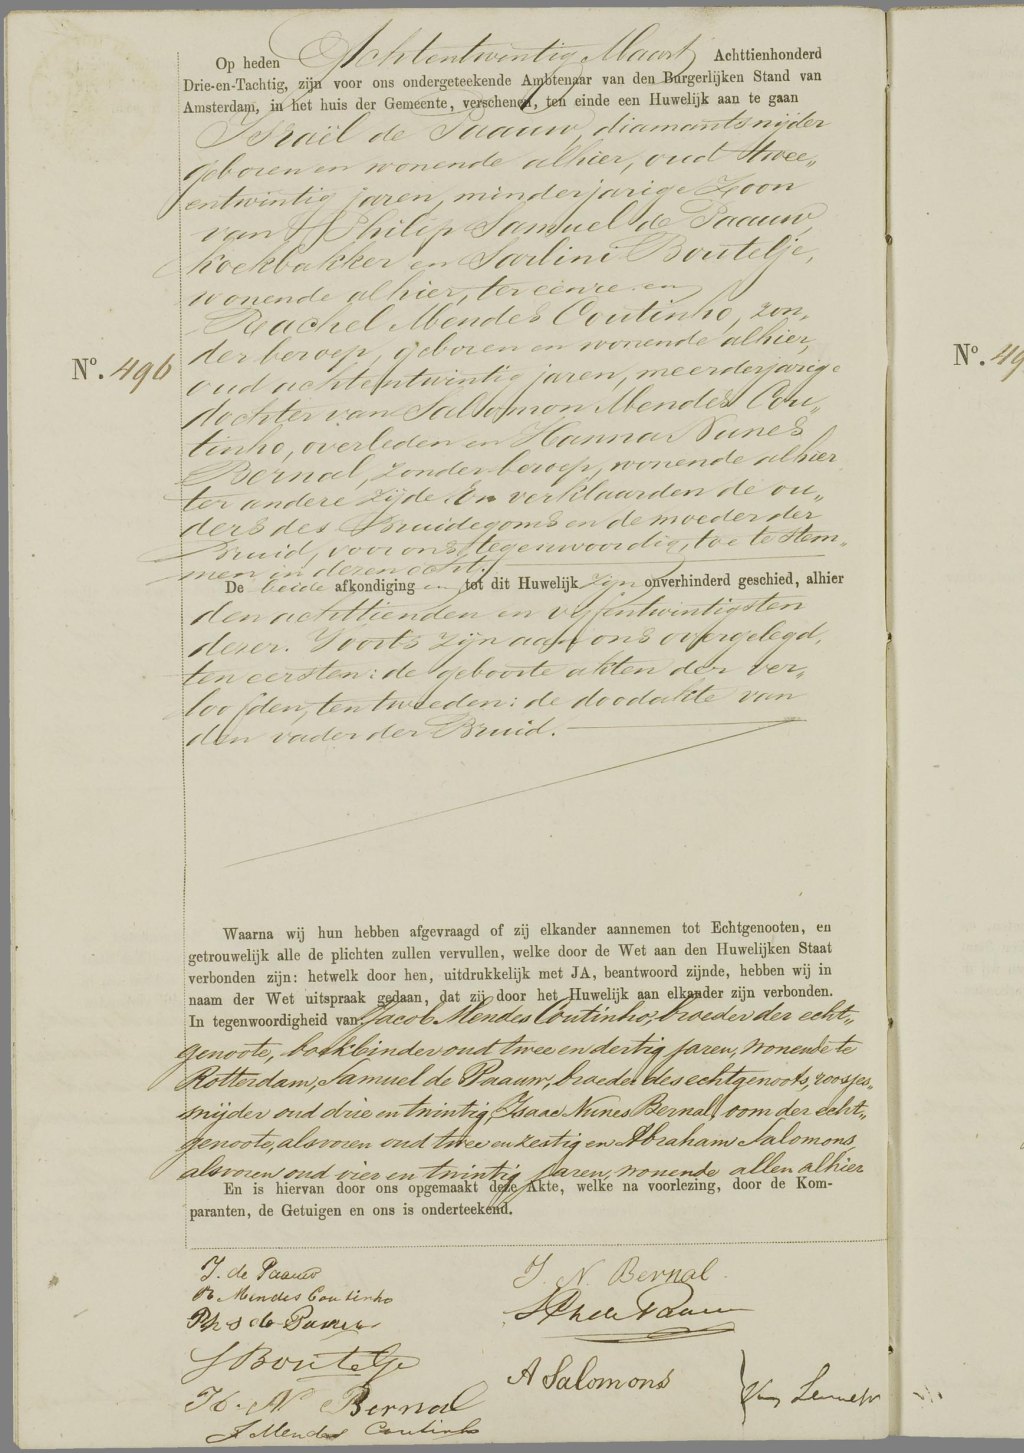 Op heden Achtentwintig Maart Achttienhonderd
Drie-en-Tachtig, zijn voor ons ondergeteekende Ambtenaar van den Burgerlijken Stand van
Amsterdam, in het huis der Gemeente, verschenen, ten einde een Huwelijk aan te gaan
Israël de Paauw, diamantsnijder
geboren en wonende alhier, oud twee„
entwintig jaren, minderjarige Zoon
van Philip Samuel de Paauw,
koekbakker en Sarlini Boutelje,
wonende alhier, ter eenre en
Rachel Mendes Coutinho, zon„
der beroep, geboren en wonende alhier,
No. 496
oud achtentwintig jaren, meerderjarige
dochter van Salomon Mendes Cou„
tinho, overleden en Hanna Nunes
Bernal, zonder beroep, wonende alhier
ter andere zijde. En verklaarden de ou„
ders des Bruidegoms en de moeder der
Bruid, voor ons tegenwoordig, toe te stem„
men in dezen echt.
De beide afkondiging en tot dit Huwelijk zijn onverhinderd geschied, alhier
den achttienden en vijfentwintigsten
dezer. Voorts zijn aan ons overgelegd,
ten eersten: de geboorte akten der ver„
loofden, ten tweeden: de doodakte van
den vader der Bruid.
Waarna wij hun hebben afgevraagd of zij elkander aannemen tot Echtgenooten, en
getrouwelijk alle de plichten zullen vervullen, welke door de Wet aan den Huwelijken Staat
verbonden zijn: hetwelk door hen, uitdrukkelijk met JA, beantwoord zijnde, hebben wij in
naam der Wet uitspraak gedaan, dat zij door het Huwelijk aan elkander zijn verbonden.
In tegenwoordigheid van Jacob Mendes Coutinho, broeder der echt„
genoote, boekbinder oud twee en dertig jaren, wonende te
Rotterdam, Samuel de Paauw, broeder des echtgenoots, roosjes„
snijder oud drie en twintig, Isaac Nunes Bernal, oom der echt„
genoote, alsvoren oud twee en zestig en Abraham Salomons
alsvoren oud vier en twintig jaren, wonende allen alhier
En is hiervan door ons opgemaakt deze Akte, welke na voorlezing, door de Kom-
paranten, de Getuigen en ons is onderteekend.
J. de Paauw
R Mendes Coutinho
Ph S de Paauw
S Boutelje
H. N Bernal
J Mendes Coutinho
J. N. Bernal
S Ph de Paauw
A Salomons
No. 49